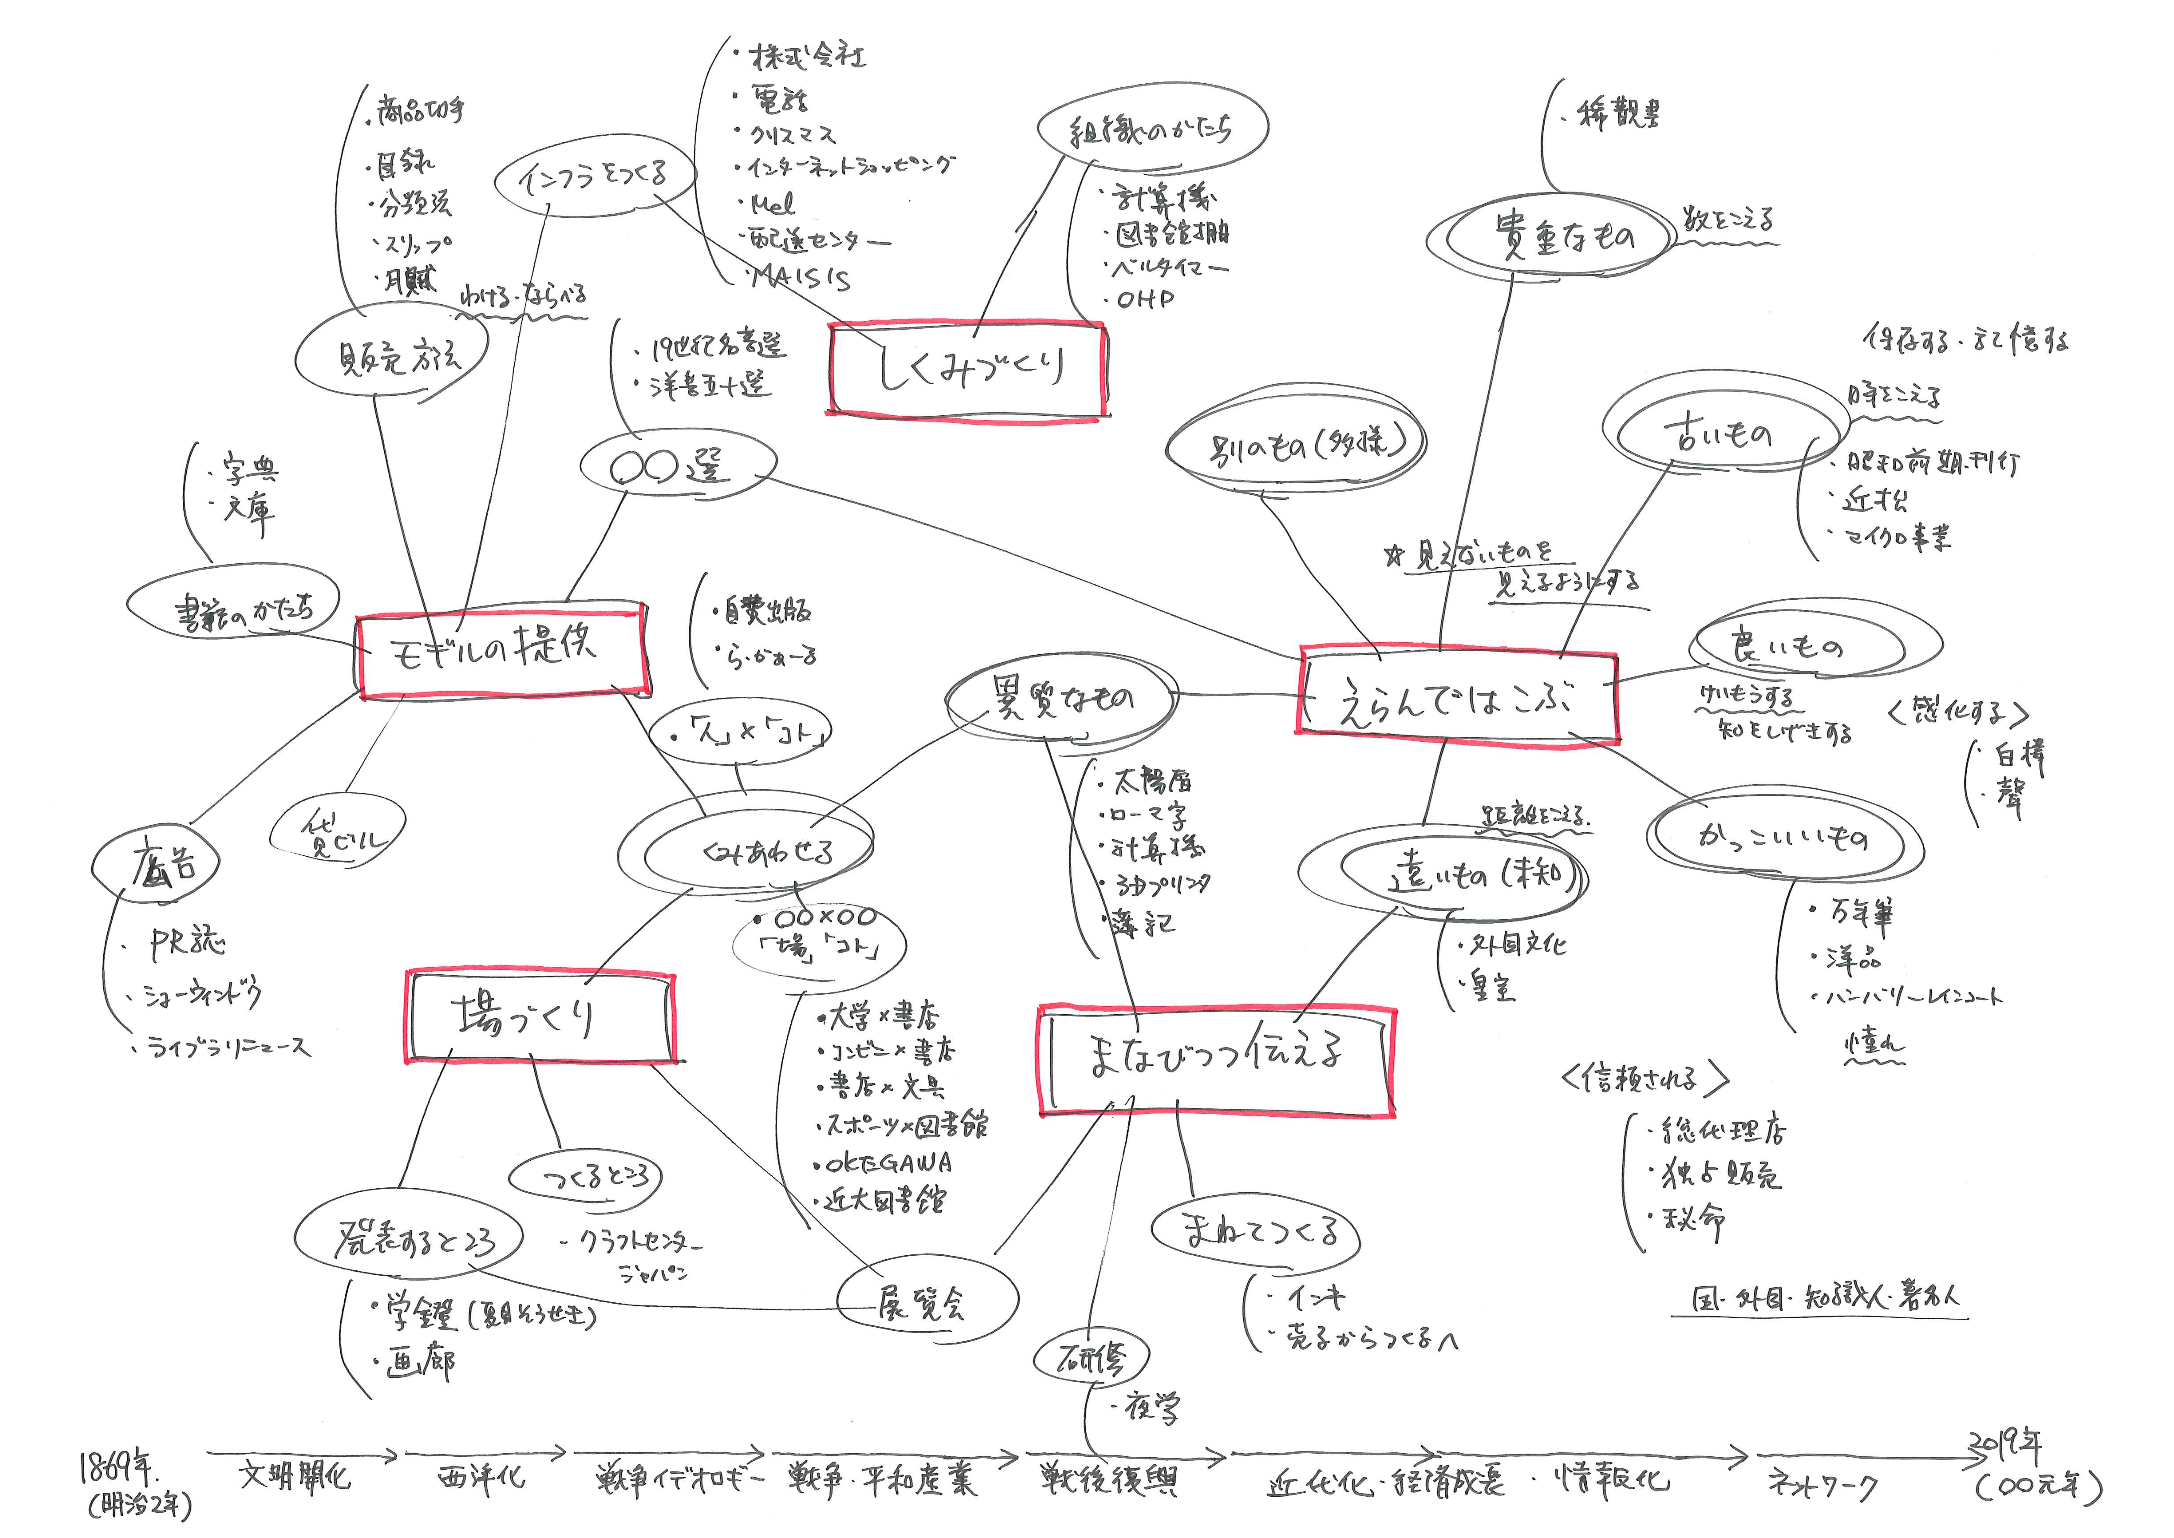 ・株式会社
・電話
・クリスマス
・インターネットショッピング
・Mel
・配送センター
・MAISIS
インフラをつくる
・商品切手
・目録
・分類法
・スリップ
・月賦
わける・ならべる
販売方法
組織のかたち
・計算機
・図書館棚
・ベルタイマー
・OHP
しくみづくり
・稀覯書
貴重なもの
数をこえる
保存する・記憶する
時をこえる
古いもの
・昭和前期刊行
・近松
・マイクロ事業
別のもの(多様)
・19世紀名著選
・洋書五十選
〇〇選
・字典
・文庫
書籍のかたち
モデルの提供
☆見えないものを
見えるようにする
えらんではこぶ
良いもの
けいもうする
知をしげきする
<感化する>
・白樺
・聲
・自費出版
・ら・かぁーる
・「人」×「コト」
異質なもの
・太陽暦
・ローマ字
・計算機
・3Dプリンタ
・簿記
くみあわせる
・〇〇×〇〇
「場」「コト」
・大学×書店
・コンビニ×書店
・書店×文具
・スポーツ×図書館
・OKEGAWA
・近大図書館
貸ビル
広告
・PR誌
・ショーウィンドウ
・ライブラリニュース
距離をこえる
遠いもの(未知)
・外国文化
・皇室
かっこいいもの
・万年筆
・洋品
・バンバリーレインコート
憧れ
場づくり
まなびつつ伝える
<信頼される>
・総代理店
・独占販売
・秘命
国・外国・知識人・著名人
つくるところ
・クラフトセンター
ジャパン
発表するところ
・学鐙(夏目そうせき)
・画廊
展覧会
まねてつくる
・インキ
・売るからつくるへ
研修
・夜学
1869年
(明治2年)
文明開化
西洋化
戦争イデオロギー
戦争・平和産業
戦後復興
近代化・経済成長・情報化
ネットワーク
2019年
(〇〇元年)